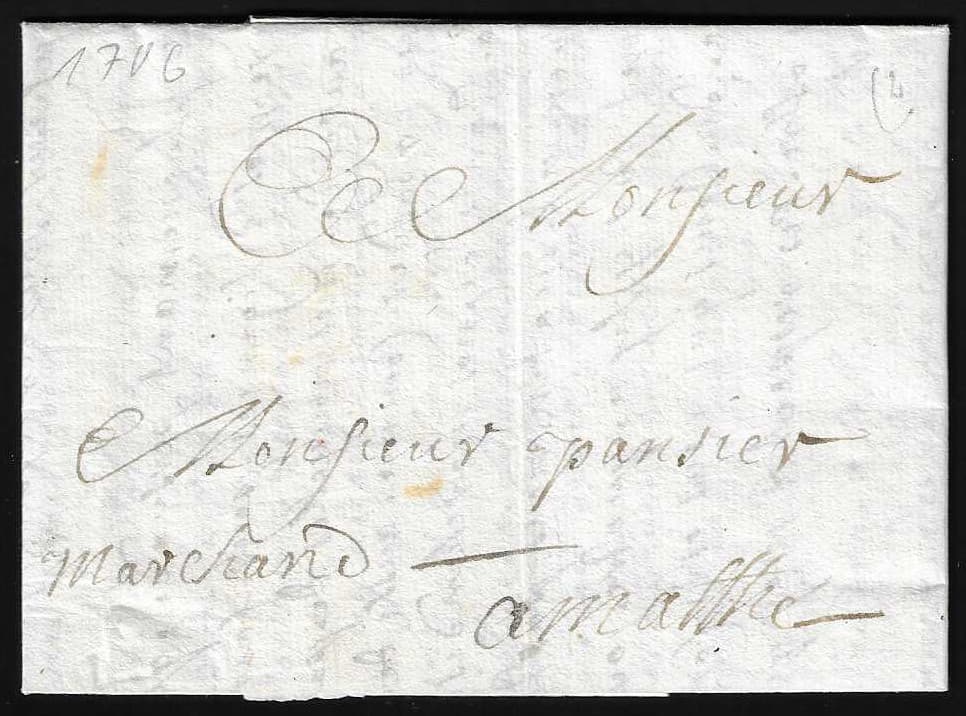 A Monsieur
Monsieur pansier
Marchand
a malthe